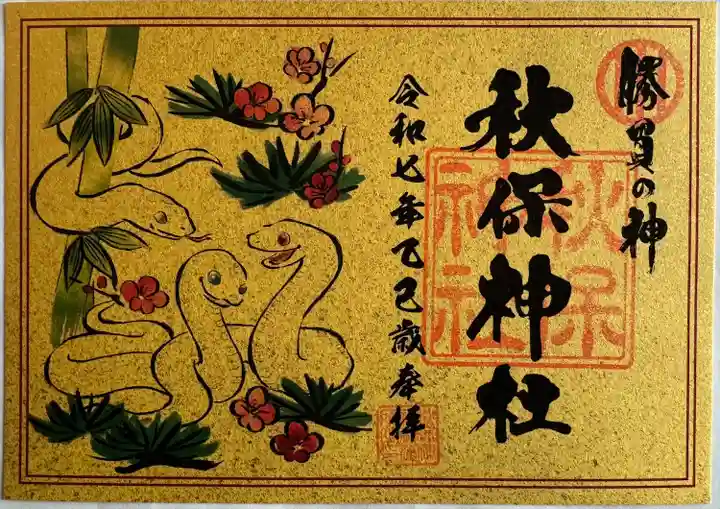 勝負の神
秋保神社
秋保
神社
令和七年乙巳歳奉拝